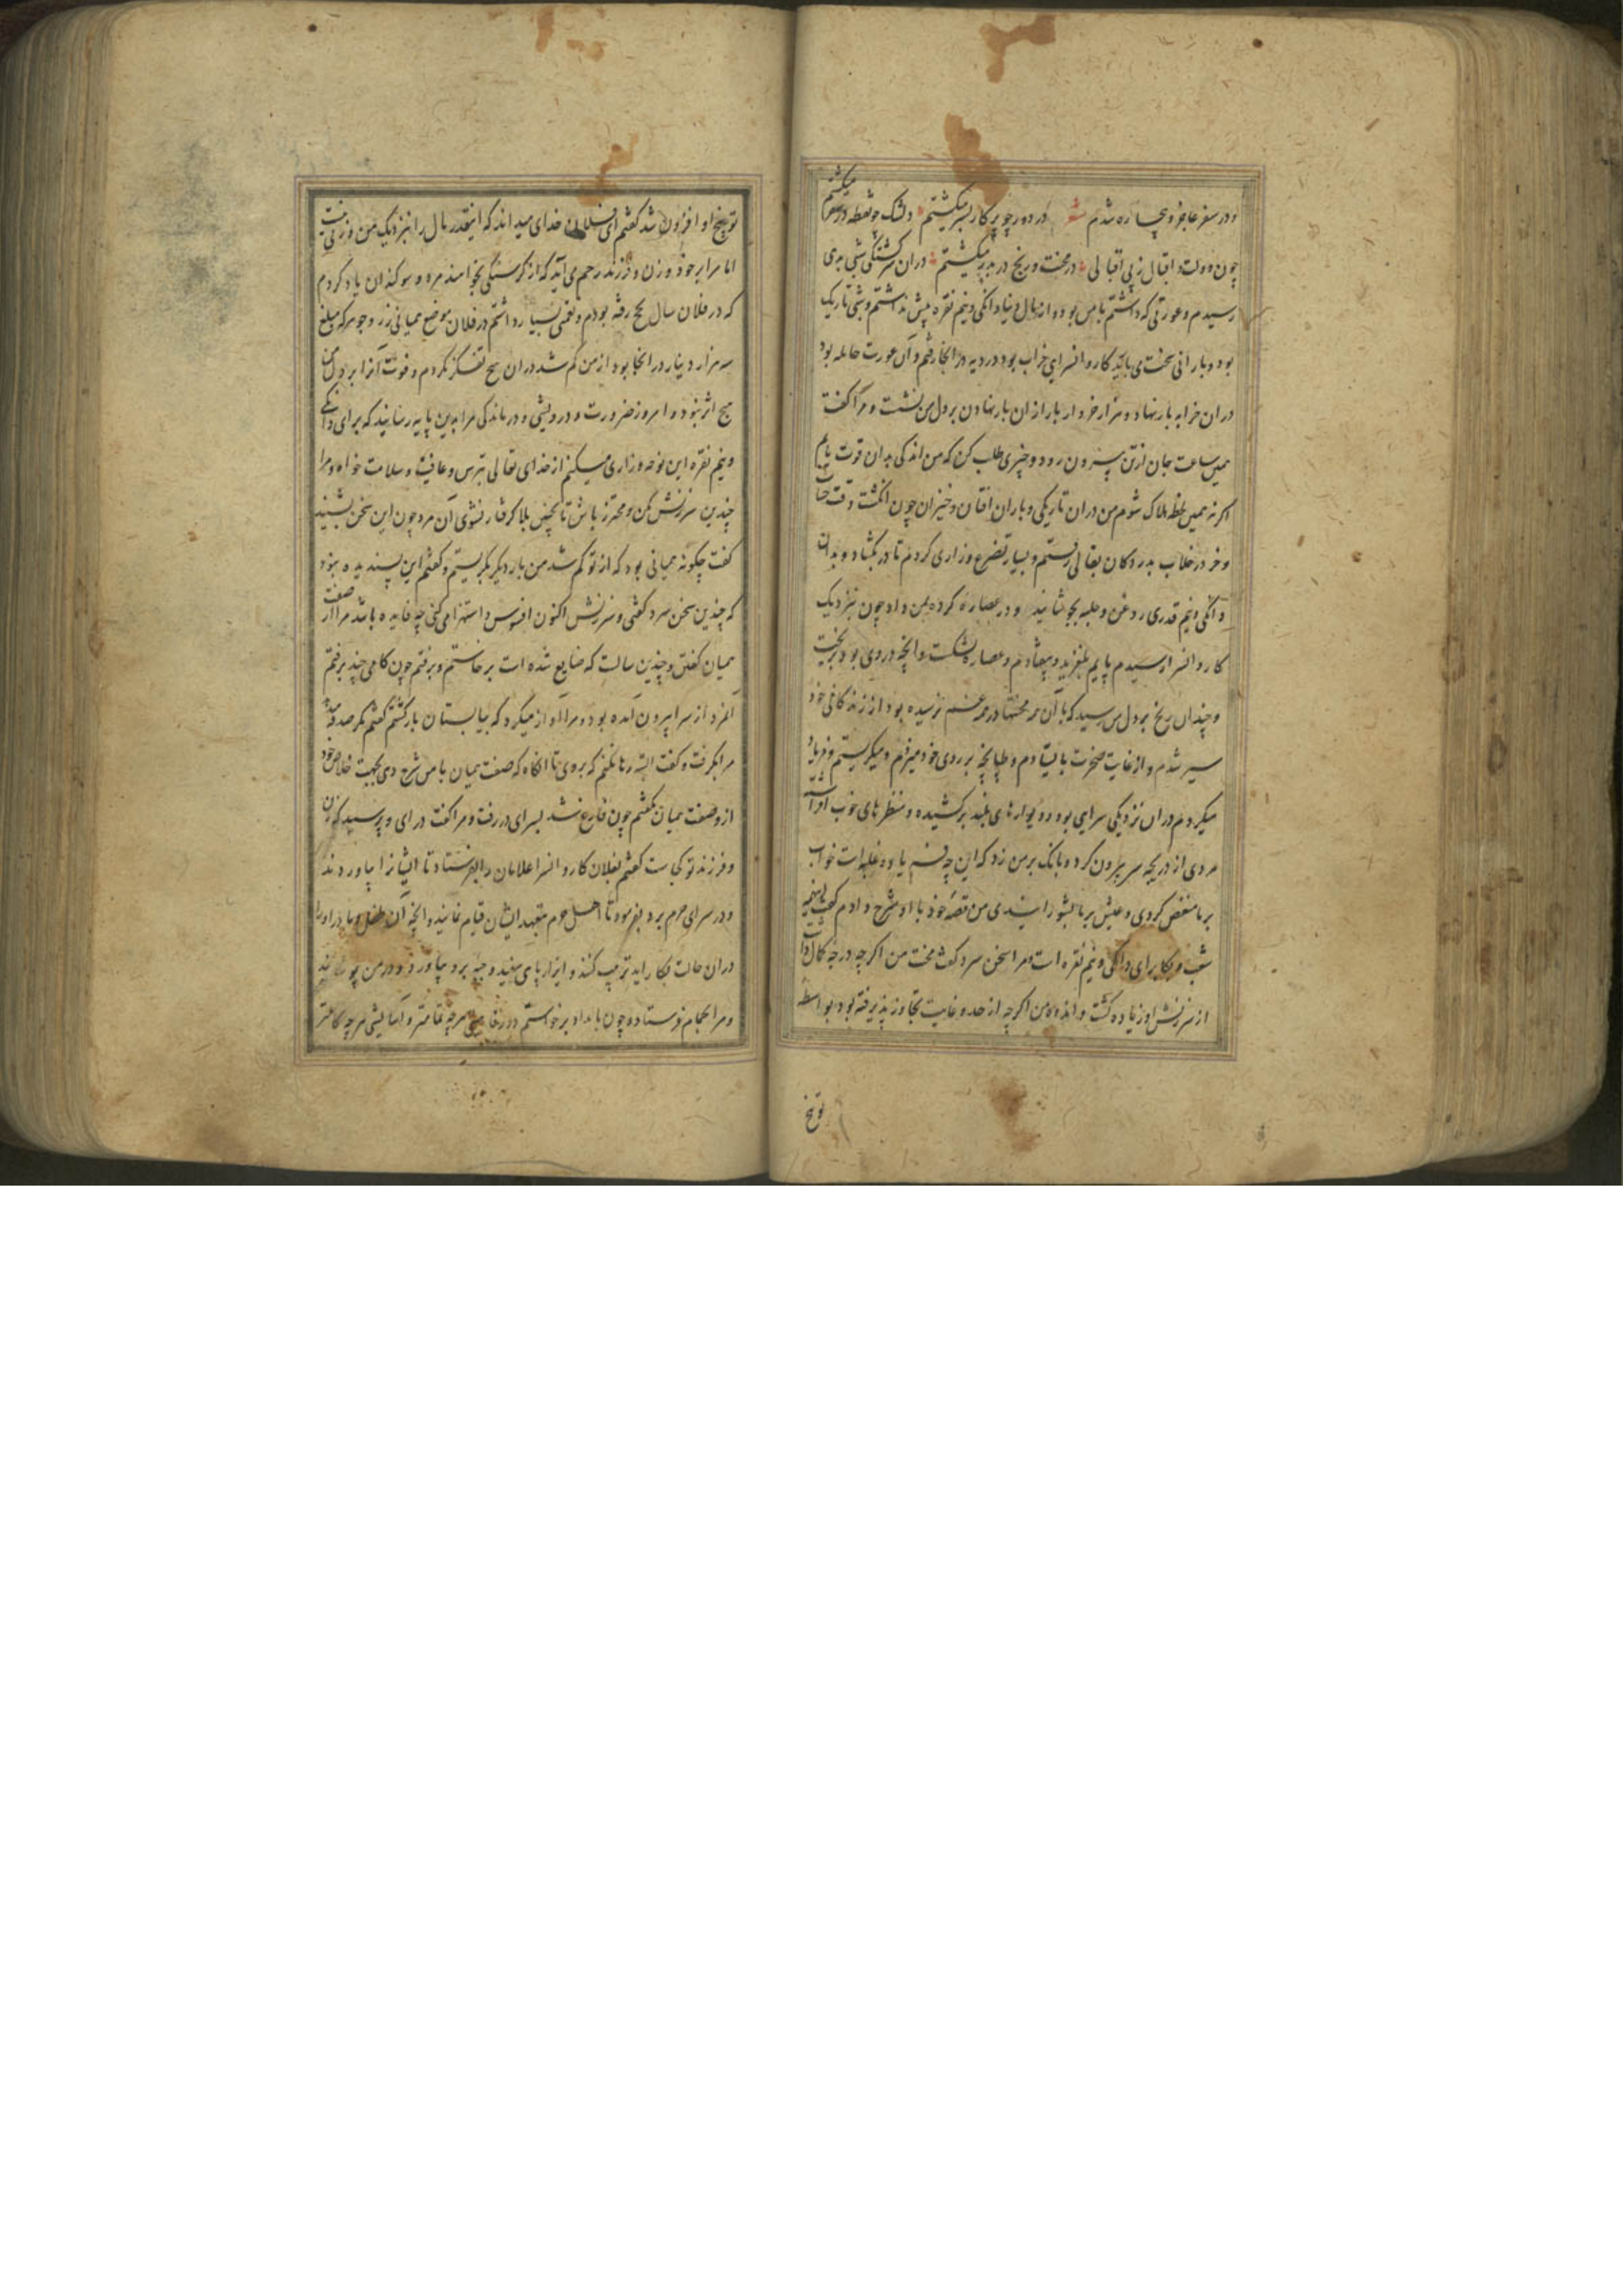 و در سفر عاجز و بیچاره شدم شعر در دور چو پرکار بسر میکشتم دلتنک چو نقطه در سفر میکشتم
چون دولت و اقبال ز بی اقبالی در محنت و رنج در بدر میکشتم در ان سرکشتکی شبی بدی
رسیدم و عورتی که داشتم با من بود و از مال دنیا دانکی و نیم نقره بیش نداشتم و شبی تاریک
بود و بارانی سخت می بارید کاروانسرایی خراب بود در دیه در انجا رفتم و آن عورت حامله بود
در ان خرابه بار نهاد و هزار خروار بار از ان بار نهادن بر دل من نشست و مرا کفت
همین ساعت جان از تن بیرون رود و چیزی طلب کن که من اندکی بدان قوت یابم
اکر نه همین لحظه هلاک شوم من در ان تاریکی و باران افتان و خیزان چون انکشت وقت
و خر در خلاب بدر دکان بقالی رفتم و بسیار تضرع و زاری کردم تا در بکشاد و بدان
دانکی و نیم قدری روغن و حلبه بجوشانید و در عصاره کرده بمن داد چون بنزدیک
کاروانسرا رسیدم پایم بلغزید و بیفتادم و عصاره بشکست و انچه در وی بود بریخت
و چندان رنج بر دل من رسید که با آن همه محنتها در همه عمرم نرسیده بود از زندکانی خود
سیر شدم و از غایت ضجرت بایستادم و طپانچه بر روی خود میزدم و میکریستم و فریاد
میکردم در ان نزدیکی سرایی بود و دیوارهای بلند برکشیده و منظرهای خوب
مردی از دریچه سر بیرون کرد و بانک بر من زد که این چه یاوه غلبه است خواب
بر ما منغص کردی و عیش بر ما بشورانیدی من قصه خود با او شرح دادم کفت این همه
شب و بکا برای دانکی و نیم نقره است مرا سخن سرد کفت محنت من اکرچه درجه کمال
از سرزنش او زیاده کشت و اندوه من اکرچه از حد و غایت تجاوز پذیرفته بود بواسطه
توبیخ
توبیخ او افزون شد کفتم ای فلان خدای میداند که اینقدر مال را بنزدیک من وزنی نیست
اما مرا بر خود و زن و فرزند رحم می آید که از کرسنکی بخواهند مرد و سوکندان یاد کردم
که در فلان سال بحج رفته بودم و نعمتی بسیار داشتم در فلان موضع همیانی زر و جوهر که مبلغ
سه هزار دینار در انجا بود از من کم شد در ان هیچ تفکر نکردم و فوت آنرا بر دل من
هیچ اثر نبود و امروز ضرورت و درویشی و درماندکی مرا بدین پایه رسانید که برای دانکی
و نیم نقره این نوحه و زاری میکنم از خدای تعالی بترس و عافیت و سلامت خواه و مرا
چندین سرزنش مکن و محترز باش تا بچنین بلا کرفتار نشوی آن مرد چون این سخن بشنید
کفت چکونه همیانی بود که از تو کم شد من بار دیکر بکریستم و کفتم این پسندیده نبود
که چندین سخن سرد کفتی و سرزنش اکنون افسوس و استهزا می کنی چه فایده باشد مرا از صفت
همیان کفتن و چندین سالست که ضایع شده است برخاستم و برفتم چون کامی چند برفتم
آنمرد از سرا بیرون آمده بود و مرا آواز میکرد که بیا بستان بازکشتم کفتم مکر صدقه
مرا بکرفت و کفت البته رها نکنم که بروی تا انکاه که صفت همیان با من شرح دهی بجهت خلاص خود
از و صفت همیان بکفتم چون فارغ شد بسرای در رفت و مرا کفت درای و پرسید که زن
و فرزند تو کجاست کفتم بفلان کاروانسرا غلامان را بفرستاد تا ایشانرا بیاوردند
و در سرای حرم برد بفرمود تا اهل حرم بتعهد ایشان قیام نمایند و انچه آن طفل و مادر او را
در ان حالت بکار اید ترتیب کنند و ایزار پای سفید و جبه برد بیاورد و در من پوشانید
و مرا بحمام فرستاد و چون بامداد برخواستم در رفاهیتی هرچه تمامتر و آسایشی هرچه کاملتر